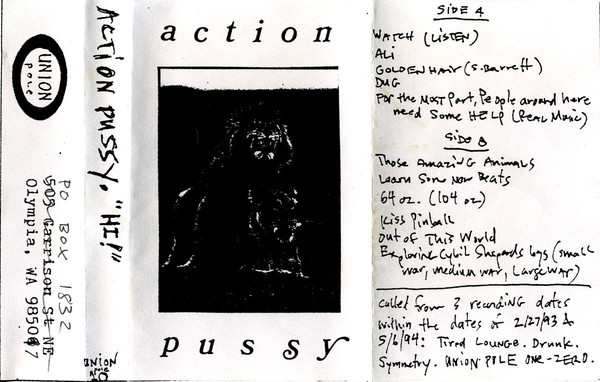 UNION
Pole
PO BOX 1832
505 Garrison St NE
Olympia, WA 98507
ACTION PUSSY. "HI!"
UNION
Pole
10
action
pussy
SIDE A
WATCH (LISTEN)
ALi
GOLDEN HAIR (S. Barrett)
DUG
For the Most Part, People around here
need Some HELP (Real Music)
SIDE B
Those AMAZiNG Animals
Learn Son New Beats
64 oz. (104 oz)
Kiss Pinball
Out of This World
Exploring Cybil Shepards legs (small
war, medium war, Large WAR)
culled from 3 recording dates
within the dates of 2/27/93 &
5/6/94: Tired Lounge. Drunk.
Symmetry. UNION POLE ONE-ZERO.